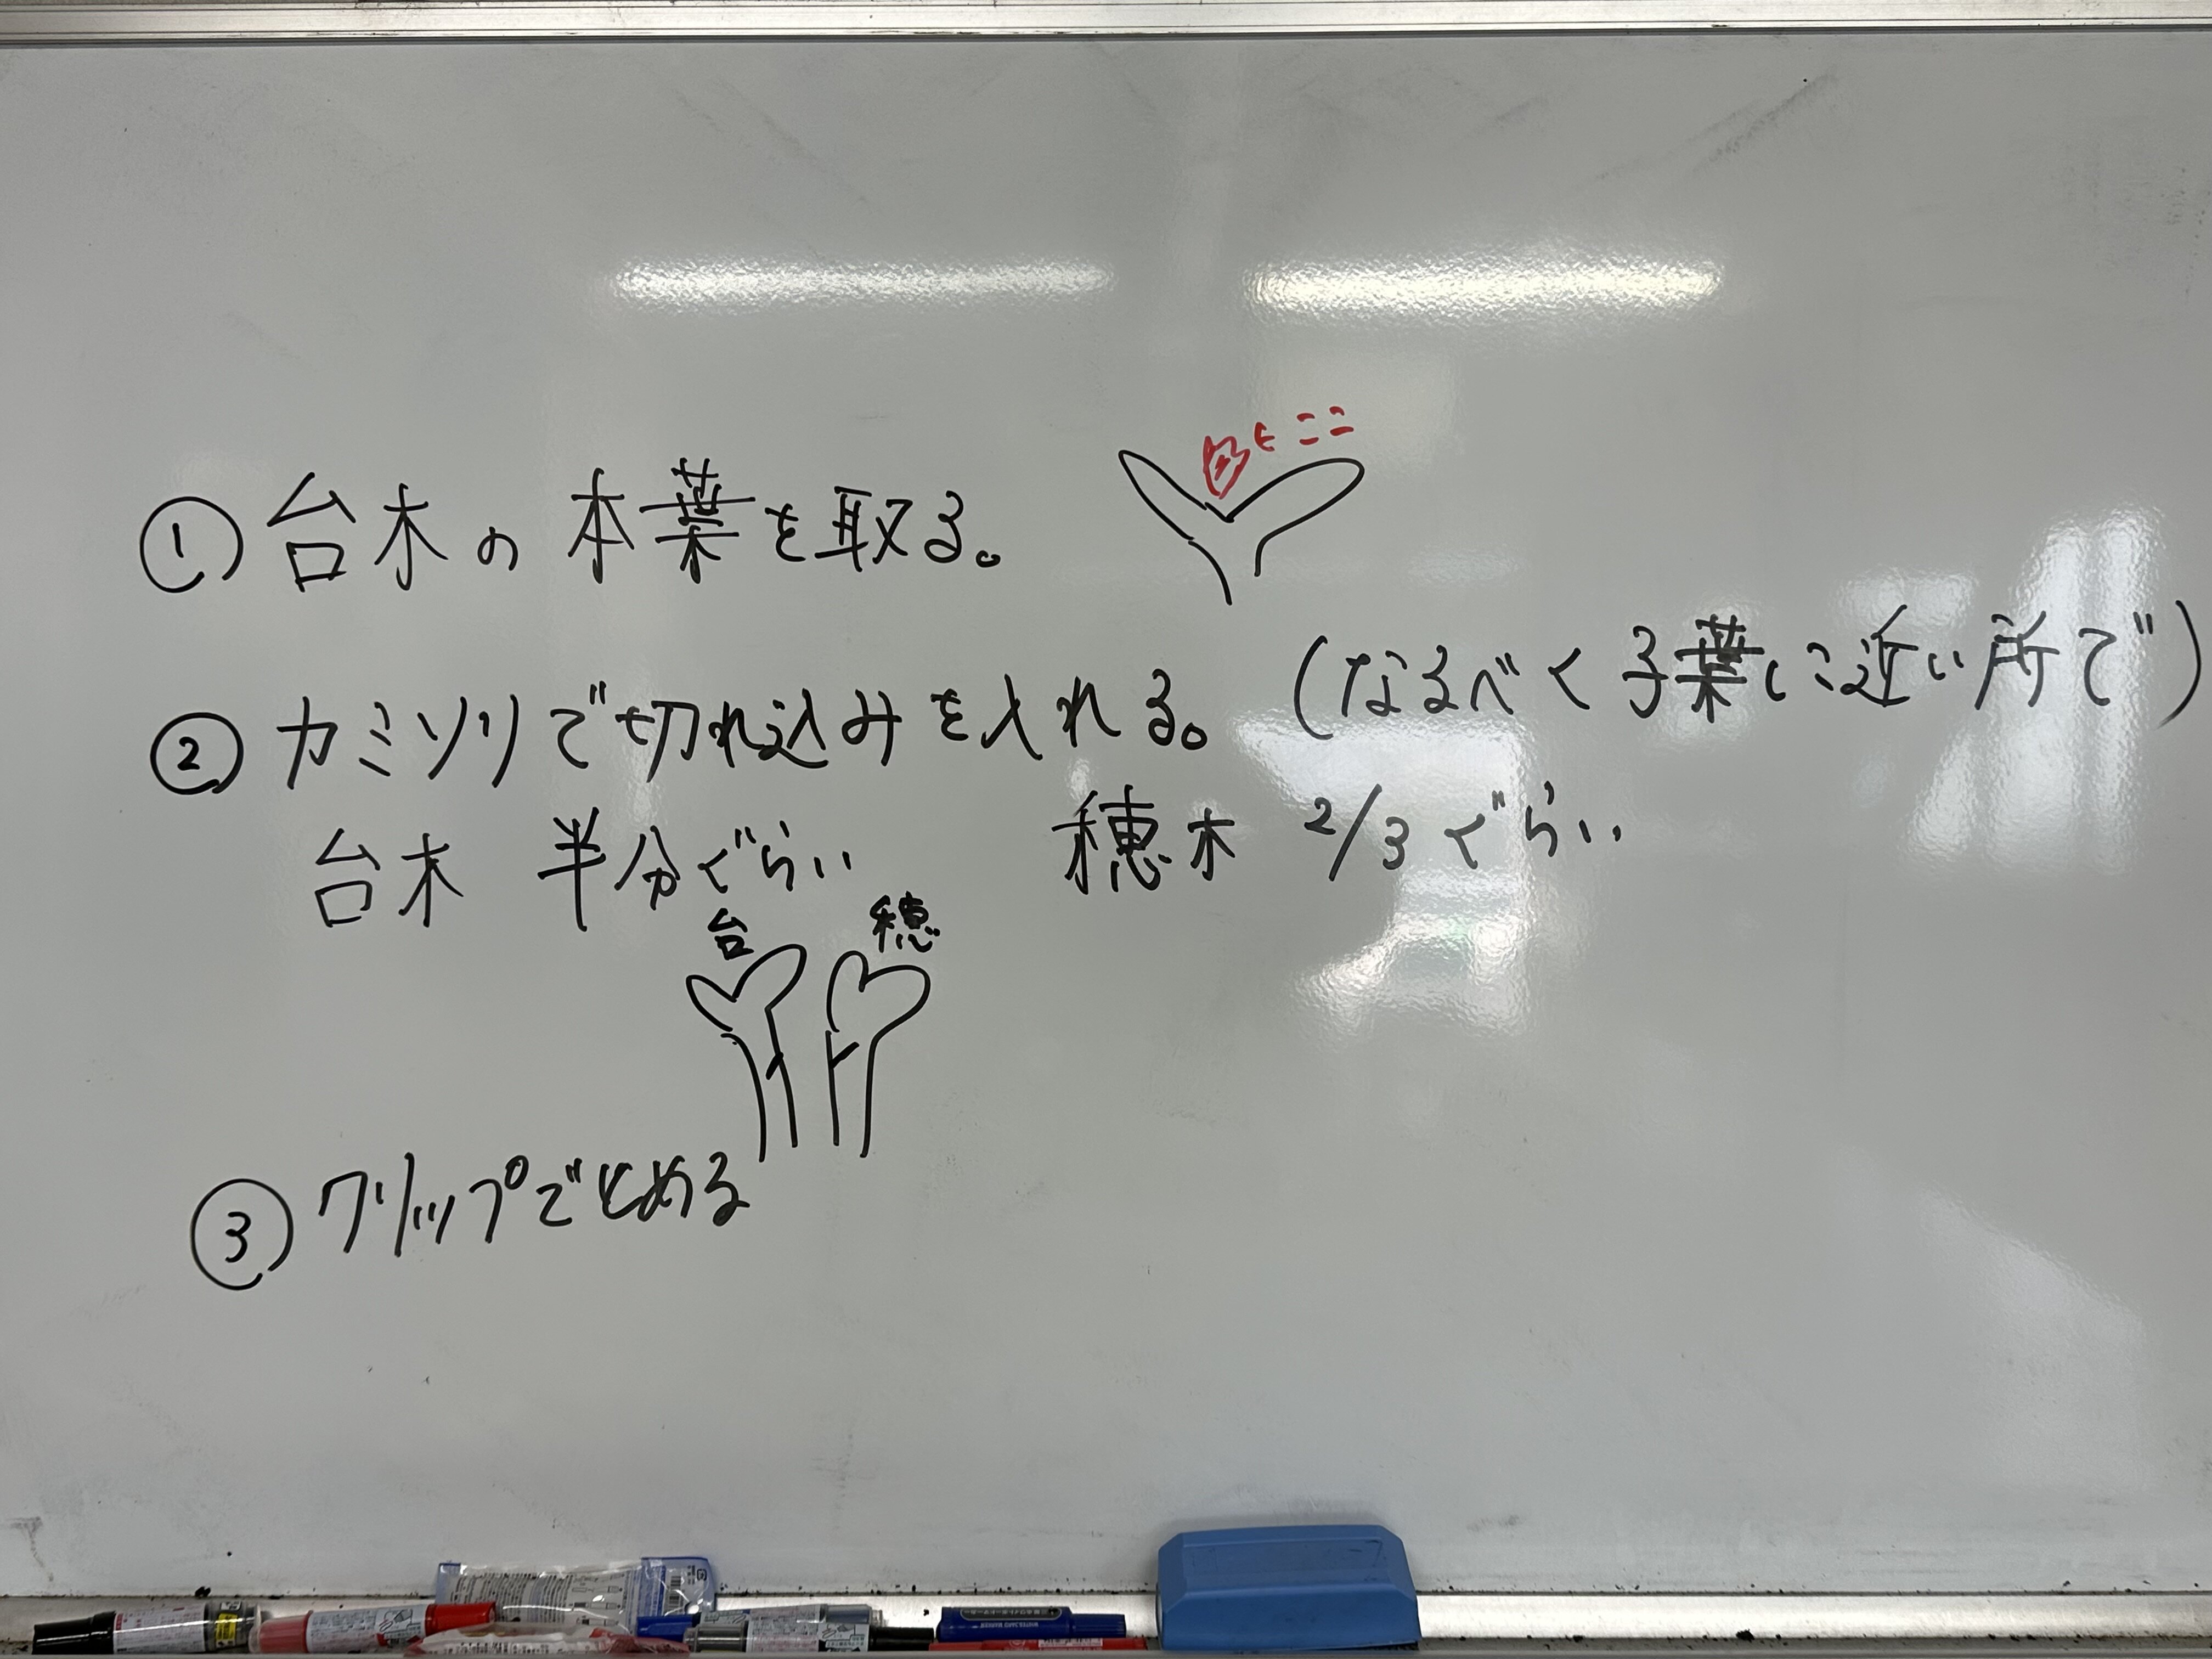 ←ここ
①台木の本葉を取る。
②カミソリで切れ込みを入れる。(なるべく子葉に近い所で)
台木 半分ぐらい 穂木 2/3ぐらい
台 穂
③クリップでとめる